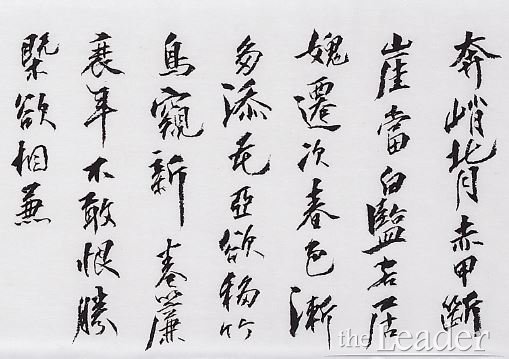 奔峭背赤甲斷
崖當白鹽客居
媿遷次春色漸
多添花亞欲移竹
鳥窺新卷簾
衰年不敢恨勝
槩欲相兼
the Leader